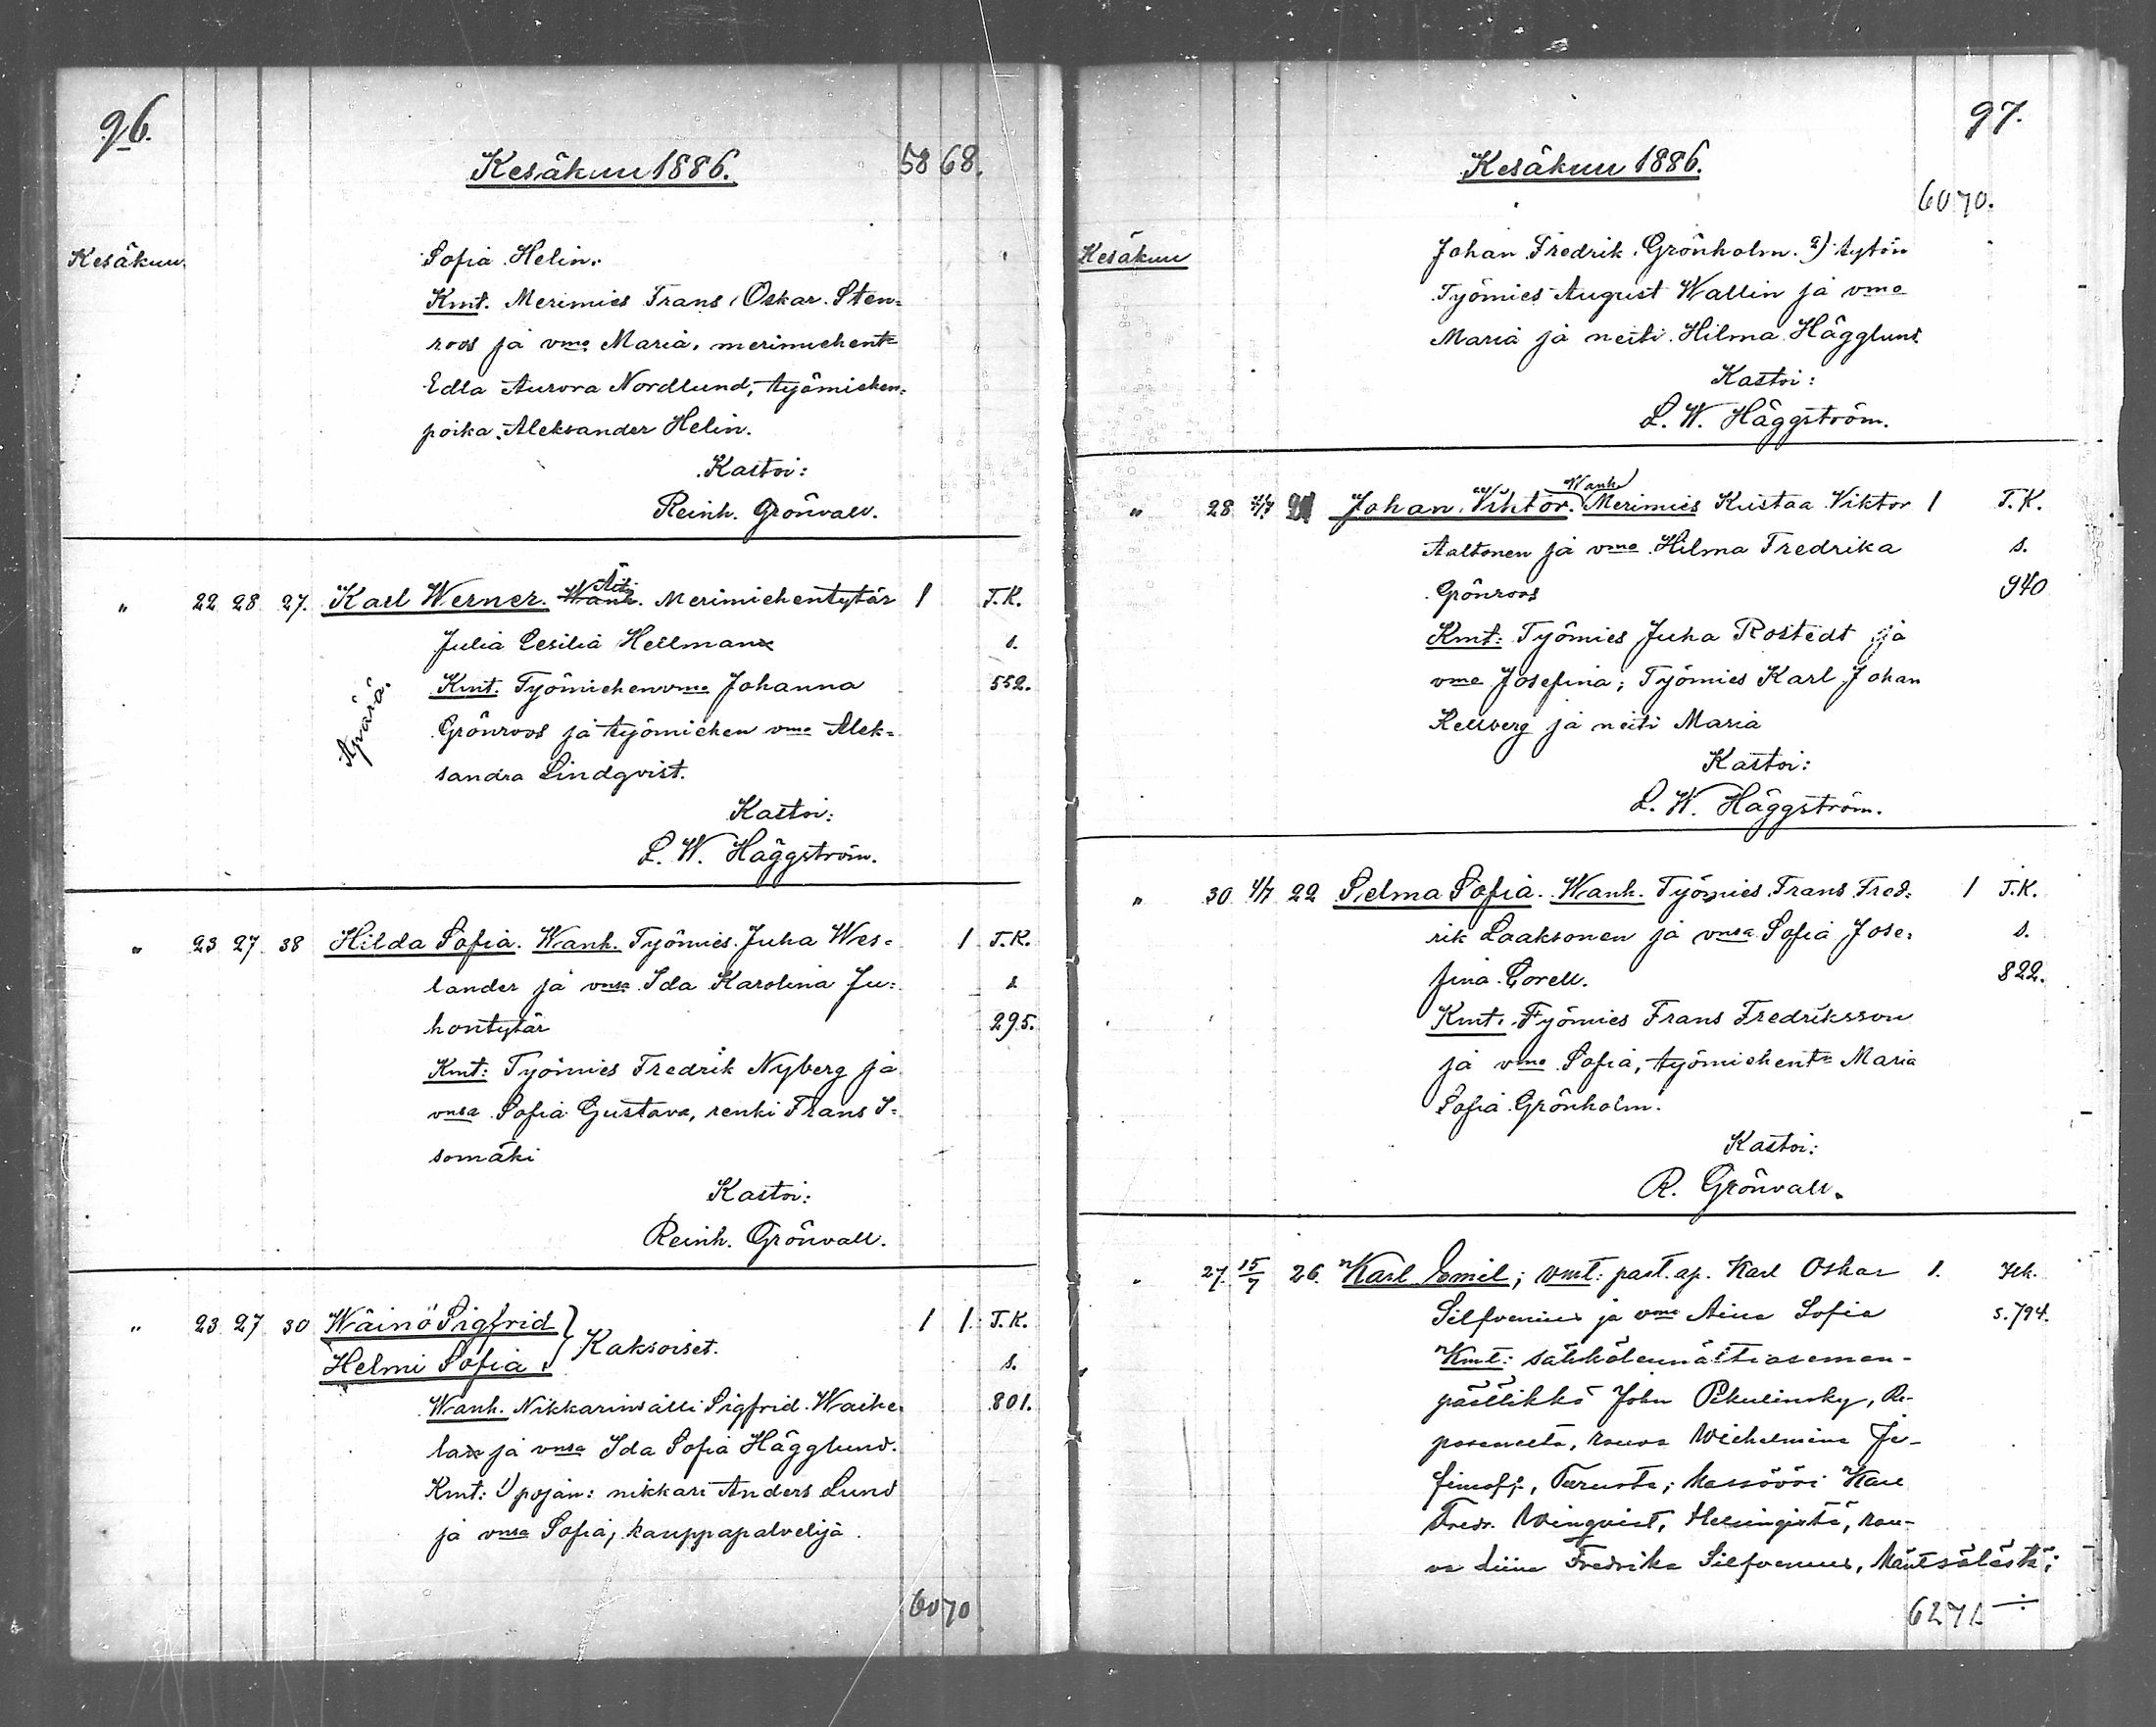 96.
Kesäkuu 1886. 58 68.
Kesäkuu. Sofia Helin.
Kmt. Merimies Frans Oskar Sten=
roos ja vmo Maria, merimiehent=
Edla Aurora Nordlund, työmiehen=
poika Aleksander Helin.
Kastoi:
Reinh. Grönvall.
Äiti
" 22 28 27. Karl Werner. Wanh. Merimiehentytär 1 T.K.
Julia Cesilia Hellman s.
Kmt. Työmiehenvmo Johanna 552.
Äpärä.
Grönroos ja työmiehen vmo Alek=
sandra Lindqvist.
Kastoi:
L. W. Häggström.
" 23 27 38 Hilda Sofia. Wanh. Työmies Juha Wes= 1 T.K.
lander ja vnsa Ida Karolina Ju= s.
hontytär 295.
Kmt: Työmies Fredrik Nyberg ja
vnsa Sofia Gustava, renki Frans I=
somäki
Kastoi:
Reinh. Grönvall.
" 23 27 30 Wäinö Sigfrid 1 1 T.K.
Helmi Sofia Kaksoiset. s.
Wanh. Nikkarinsälli Sigfrid 801.
ja vnsa Ida Sofia Hägglund.
Kmt: 1) pojan: nikkari Anders Lund
ja vnsa Sofia, kauppapalvelija
60 70
97.
Kesäkuu 1886.
60 70.
Kesäkuu Johan Fredrik Grönholm. 2) tytön
Työmies August Wallin ja vmo
Maria ja neiti Hilma Hägglund.
Kastoi:
L. W. Häggström.
Wanh.
" 28 4/7 21 Johan Vihtor. Merimies Kustaa Viktor 1 T.K.
Aaltonen ja vmo Hilma Fredrika s.
Grönroos 940
Kmt: Työmies Juha Rostedt ja
vmo Josefina; Työmies Karl Johan
Kellberg ja neiti Maria
Kastoi:
L. W. Häggström.
" 30 4/7 22 Selma Sofia. Wanh. Työmies Frans Fred= 1 T.K.
rik Laaksonen ja vnsa Sofia Jose= s.
fina Corell. 822.
Kmt. Työmies Frans Fredriksson
ja vmo Sofia, työmiehent= Maria
Sofia Grönholm.
Kastoi:
R. Grönvall.
" 27. 15/7 26. Karl Emil; vmt: past. ap. Karl Oskar 1.
Silfvenius ja vmo Aina Sofia s. 794.
Kmt: sähkölennätinaseman-
päällikkö John
rouva Wilhelmina
Karl
Fredr. Winqvist, Helsingistä, rou-
va Liina Fredrika Silfvenius, Mäntsälästä;
62 71 ÷